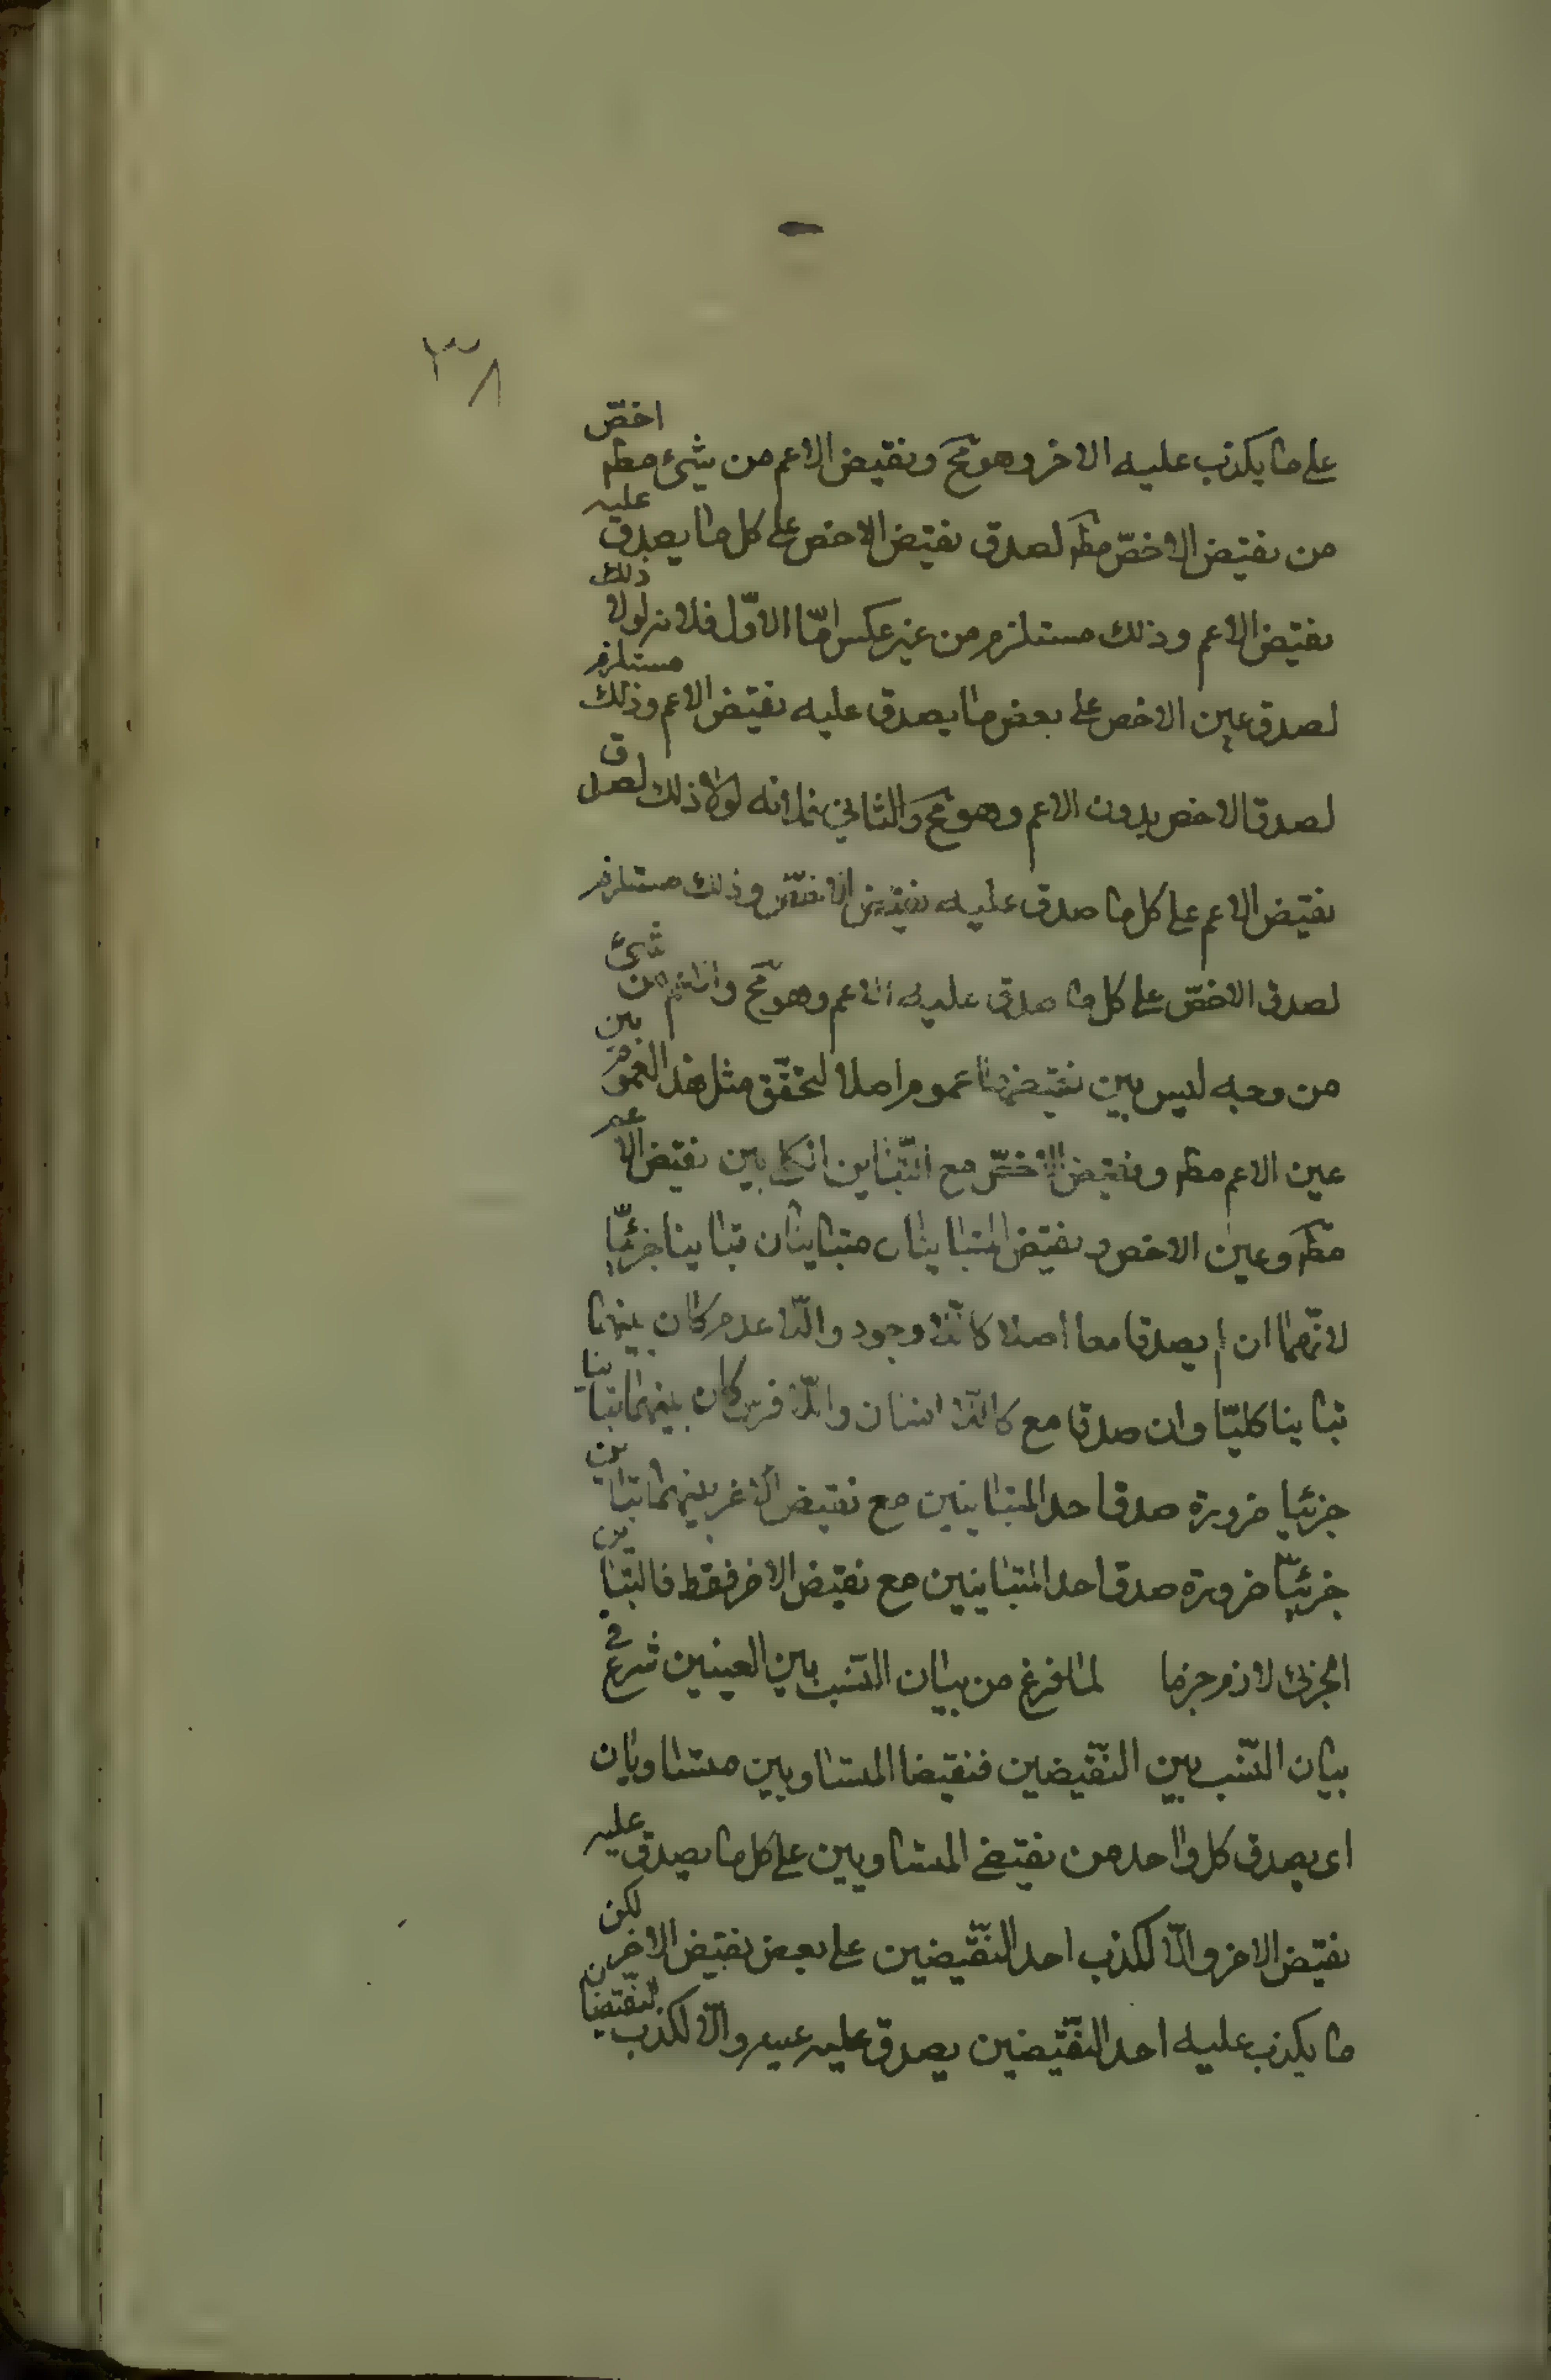 ٣٨
على ما يكذب عليه الاخر وهو مح ونقيض الاعم من شئ مطم اخصّ
من نقيض الاخصّ مطم لصدق نقيض الاخص على كل ما يصدق عليه
نقيض الاعم وذلك مستلزم من غير عكس امّا الاوّل فلانه لولا ذلك
لصدق عين الاخص على بعض ما يصدق عليه نقيض الاعم وذلك مستلزم
لصدق الاخص بدون الاعم وهو مح والثانى فلانه لولا ذلك لصدق
نقيض الاعم على كل ما صدق عليه نقيض الاخصّ وذلك مستلزم
لصدق الاخصّ على كل ما صدق عليه الاعم وهو مح والاعم من شئ
من وجه ليس بين نقيضهما عموم اصلا لتحقّق مثل هذا العموم بين
عين الاعم مطم ونقيض الاخصّ مع التّباين الكلى بين نقيض الاعم
مطم وعين الاخص ونقيض المتباينان متباينان تباينا جزئيّا
لانّهما ان لم يصدقا معا اصلا كاللّا وجود واللّا عدم كان بينهما
تباينا كليّا وان صدقا مع كاللّا انسان واللّا فرس كان بينهما تباينا
جزئيا ضرورة صدق احد المتباينين مع نقيض الاخر بينهما تباين
جزئيّا ضرورة صدق احد المتباينين مع نقيض الاخر فقط فالتباين
الجزئ لازم جزما لمّا فرغ من بيان النّسب بين العينين شرع فى
بيان النّسب بين النّقيضين فنقيضا المتساويين متساويان
اى يصدق كل واحد من نقيضى المتساويين على كل ما يصدق عليه
نقيض الاخر والّا لكذب احد النّقيضين على بعض نقيض الاخر لكن
ما يكذب عليه احد النّقيضين يصدق عليه عينه والّا لكذب النّقيضان